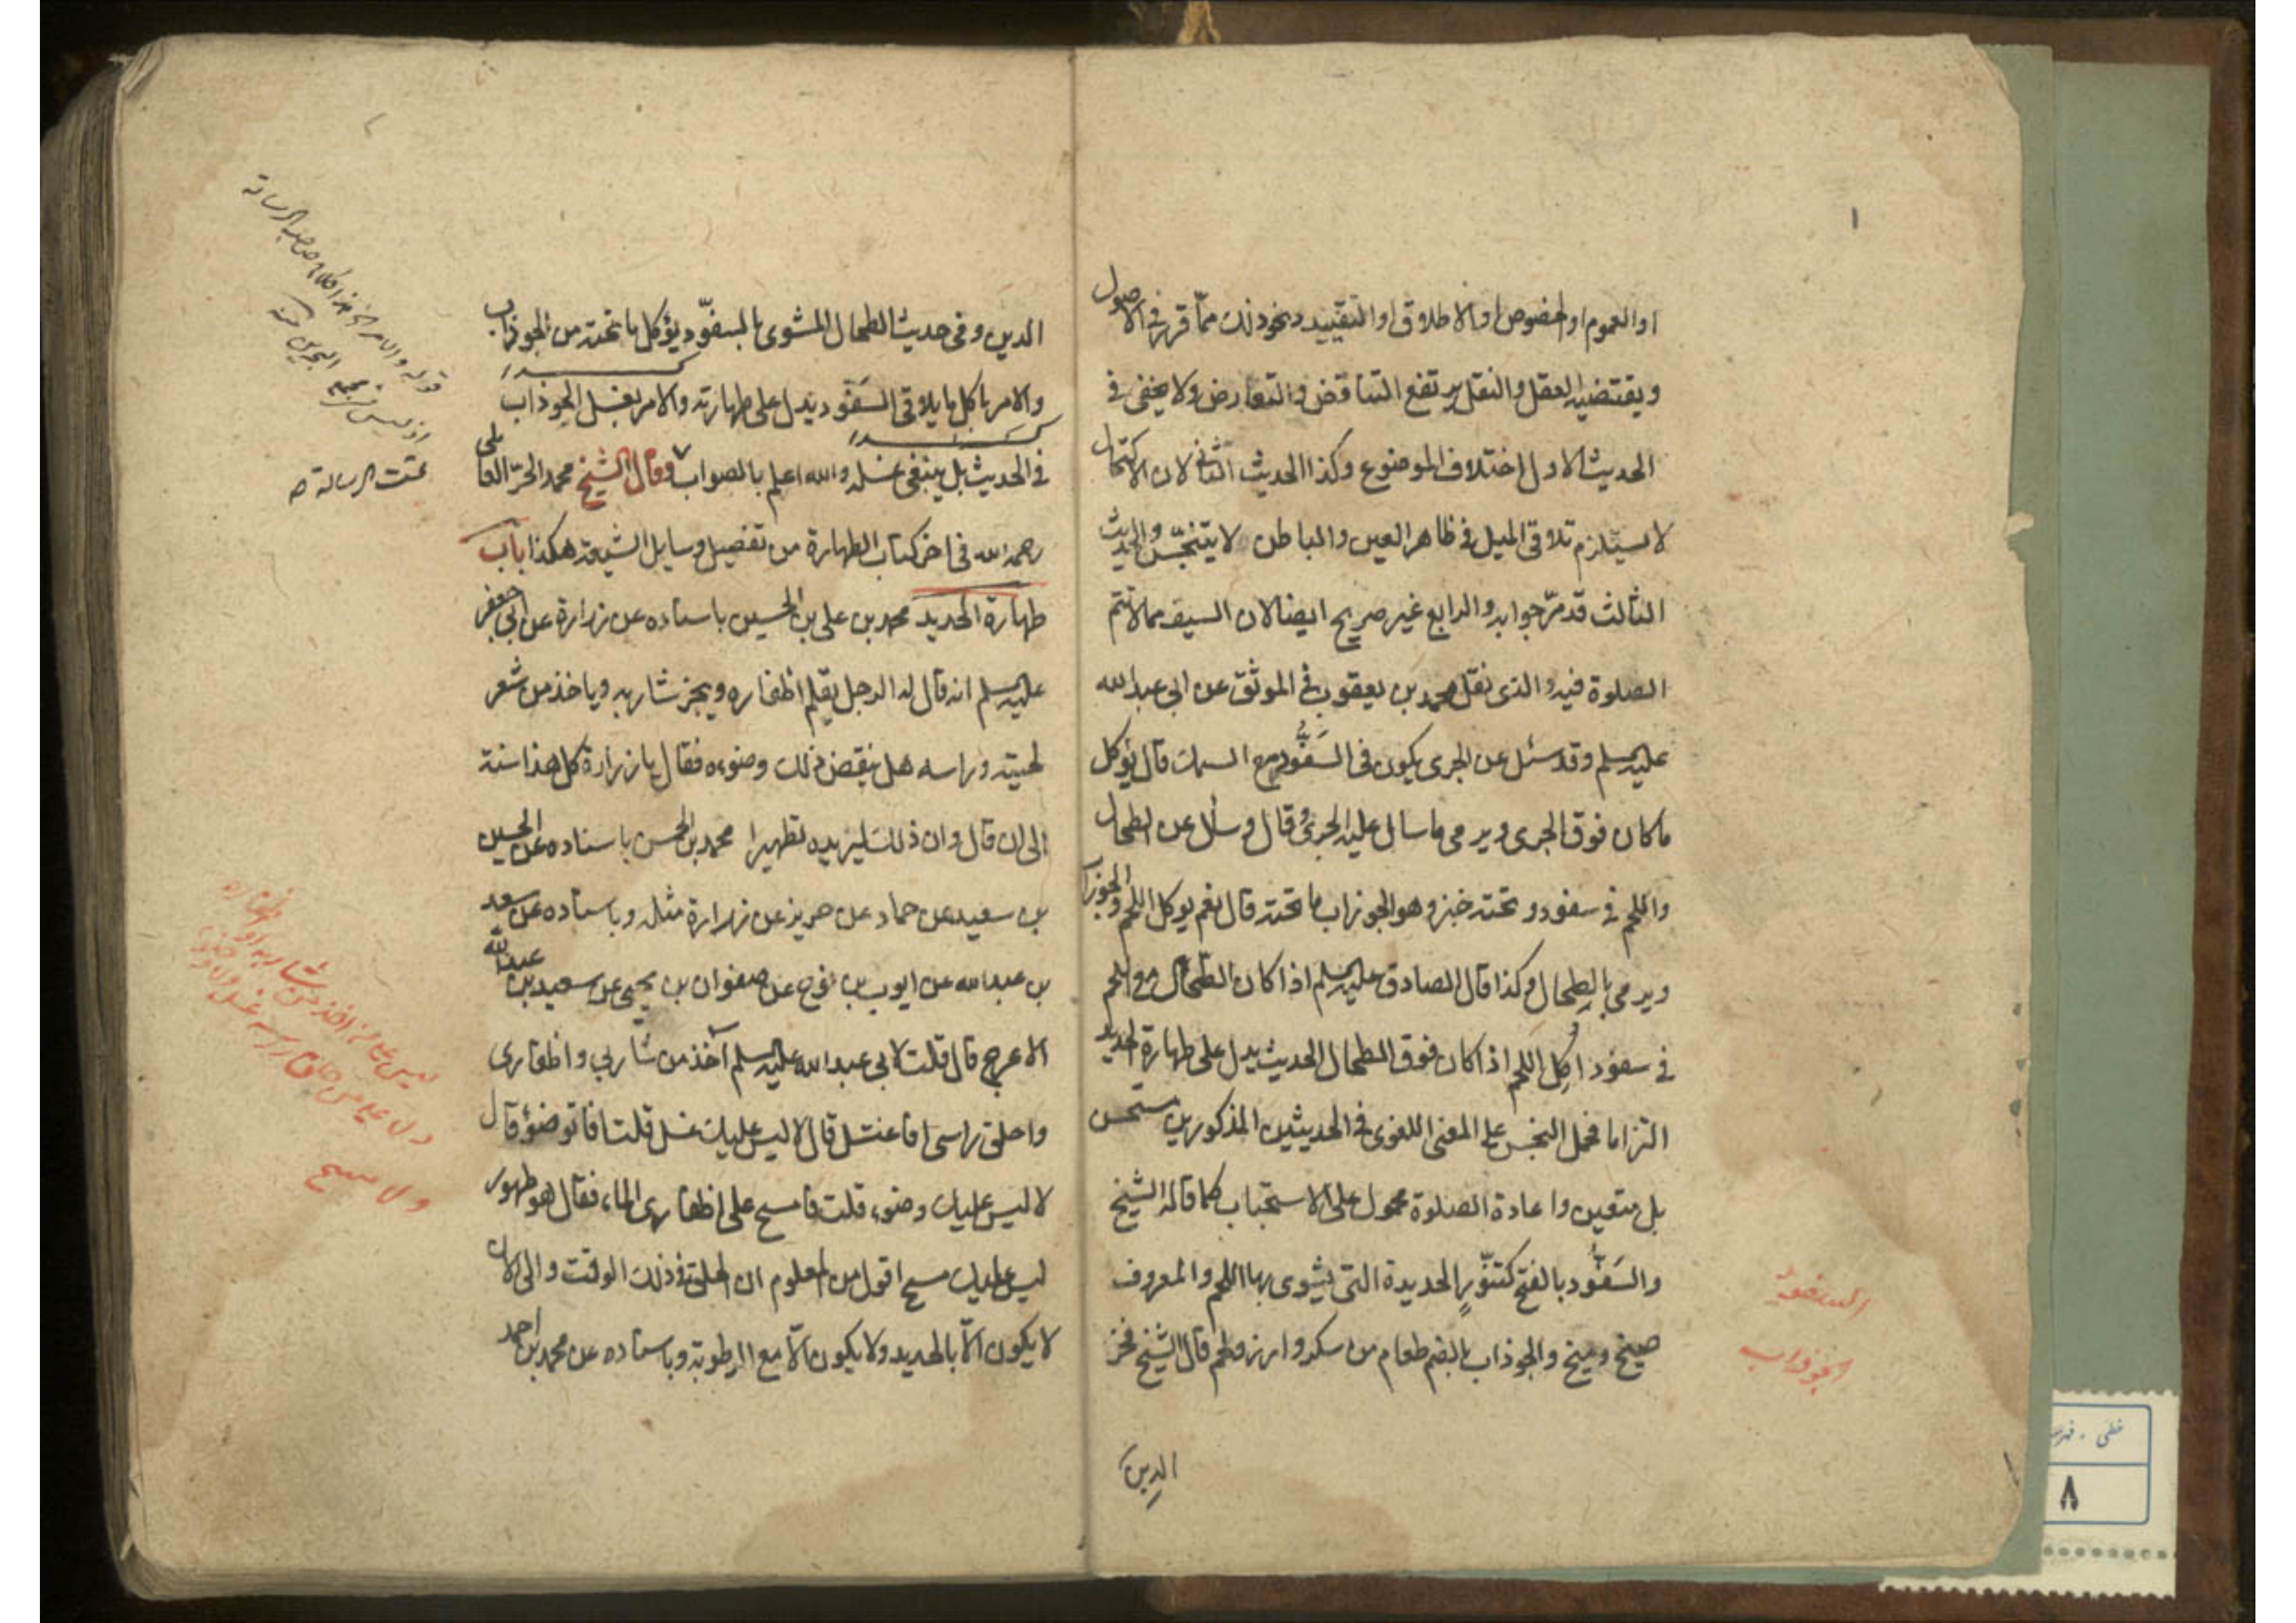 ١
او العموم او الخصوص او الاطلاق او التقييد ونحو ذلك ممّا قرر في الاصول
ويقتضيه العقل والنقل يرتفع التناقض والتعارض ولا يخفى في
الحديث الاول اختلاف الموضوع وكذا الحديث الثاني لان الاكتحال
لا يستلزم تلاقي الميل في ظاهر العين والباطن لا يتنجّس والحديث
الثالث قد مرّ جوابه والرابع غير صريح ايضا لان السيف مما لا تتم
الصلوة فيه والذى نقل محمد بن يعقوب في الموثق عن ابى عبد الله
عليه السلم وقد سئل عن الجرى يكون فى السَفُّود مع السمك قال يؤكل
ما كان فوق الجرى ويرمى ما سال عليه الجرىُّ قال وسأل عن الطحال
واللحم فى سفود وتحته خبز وهو الجوزاب ما تحته قال نعم يوكل اللحم والجوزاب
ويرمى بالطحال وكذا قال الصادق عليه السلم اذا كان الطحال مع اللحم
فى سفود اُكِل اللحم اذا كان فوق الطحال الحديث يدل على طهارة الحديد
التزاما فحمل النجس على المعنى اللغوى فى الحديثين المذكورين مستحسن
بل متعين واعادة الصلوة محمول على الاستحباب كما قاله الشيخ
والسَفُّود بالفتح كتنّورٍ الحديدة التى يشوى بها اللحم والمعروف
صيخ وميخ والجوذاب بالضم طعام من سكر وارز ولحم قال الشيخ فخر
السفود
الجوذاب
الدين
الدين وفى حديث الطحال المشوى بالسفّود يؤكل ما تحته من الجوذاب
والامر باكل ما يلاقى السَفّود يدل على طهارته والامر بغسل الجوذاب
فى الحديث بل ينبغى غسله والله اعلم بالصواب وقال الشيخ محمد الحرّ العاملى
رحمه الله فى اخر كتاب الطهارة من تفصيل وسايل الشيعة هكذا باب
طهارة الحديد محمد بن على بن الحسين باسناده عن زرارة عن ابى جعفر
عليه السلم انه قال له الرجل يقلم اظفاره ويجز شاربه وياخذ من شعر
لحيته وراسه هل ينقض ذلك وضوءه فقال يا زرارة كل هذا سنة
الى ان قال وان ذلك ليزيده تطهيرا محمد بن الحسن باسناده عن الحسين
بن سعيد عن حماد عن حريز عن زرارة مثله وباسناده عن سعد
بن عبد الله عن ايوب بن نوح عن صفوان بن يحيى عن سعيد بن عبد الله
الاعرج قال قلت لابى عبد الله عليه السلم آخذ من شاربى واظفارى
واحلق راسى افاغتسل قال لا ليس عليك غسل قلت فاتوضؤ قال
لا ليس عليك وضوء قلت فامسح على اظفارى الماء فقال هو طهور
ليس عليك مسح اقول من المعلوم ان الحلق فى ذلك الوقت والى الان
لا يكون الّا بالحديد ولا يكون الّا مع الرطوبة وباسناده عن محمد بن احمد
تمت الرسالة
ولا مسح
خطی - فهرست
٨